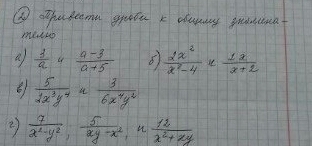 ② Привести дроби к общему знамена-
телю
а) 3/a и a-3/a+5 б) 2x²/x²-4 и 2x/x+2
в) 5/2x³y⁴ и 3/6x⁴y²
г) 7/x²-y², 5/xy-x², и 12/x²+xy